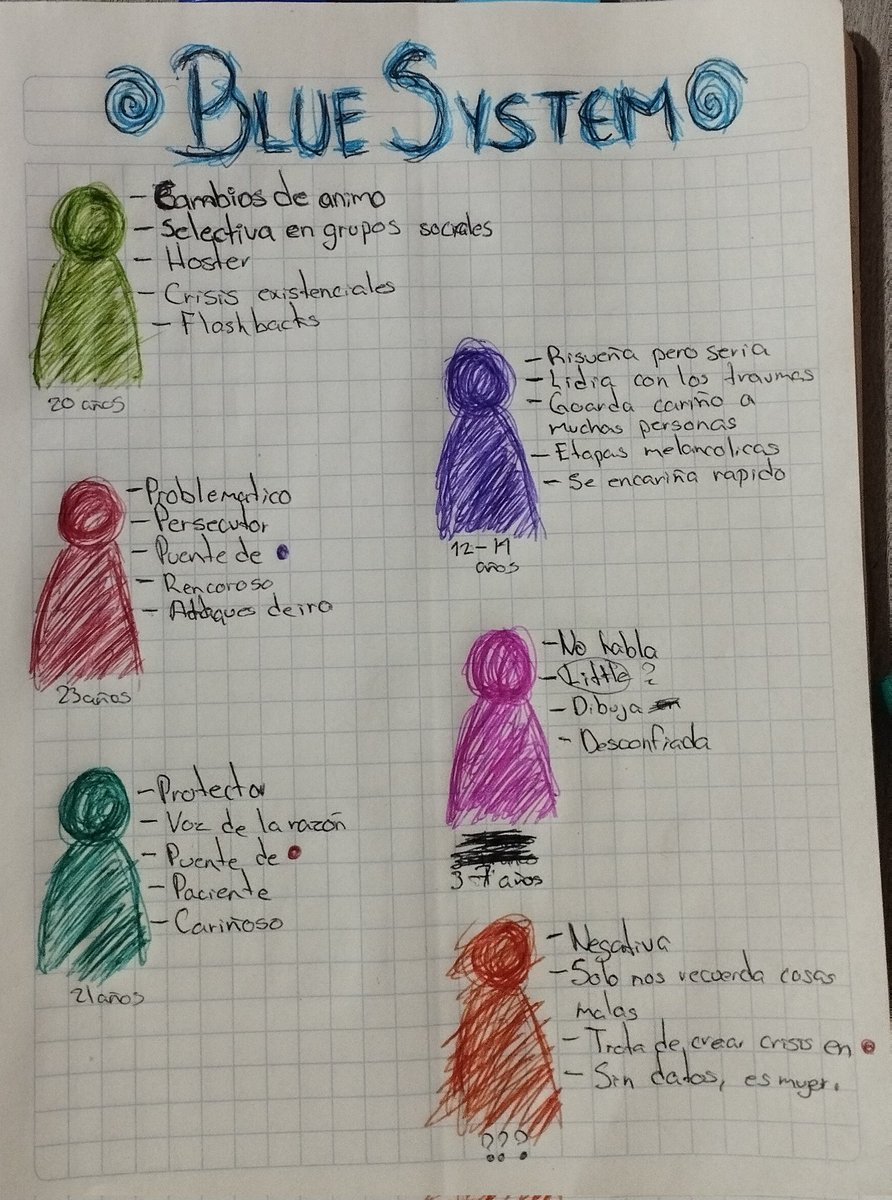 BLUE SYSTEM
- Cambios de animo
- Selectiva en grupos sociales
- Hoster
- Crisis existenciales
- Flashbacks
20 años
- Risueña pero seria
- Lidia con los traumas
- Guarda cariño a
muchas personas
- Etapas melancolicas
- Se encariña rapido
12-14
años
- Problematico
- Persecutor
- Puente de
- Rencoroso
- Ataques de ira
23 años
- No habla
- Little ?
- Dibuja
- Desconfiada
3-7 años
- Protector
- Voz de la razón
- Puente de
- Paciente
- Cariñoso
21 años
- Negativa
- Solo nos recuerda cosas
malas
- Trata de crear crisis en
- Sin datos, es mujer.
???